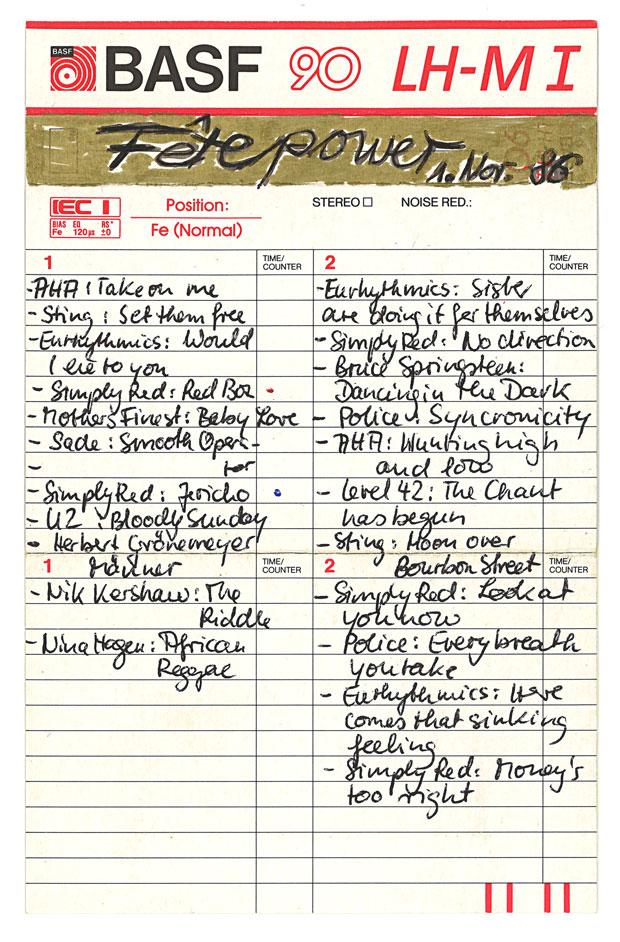 BASF
BASF 90 LH-M I
Fête power
1. Nov. 86
IEC I
BIAS EQ RS*
Fe 120µs ±0
Position:
Fe (Normal)
STEREO
NOISE RED.:
1
TIME/
COUNTER
- AHA: Take on me
- Sting: Set them free
- Eurhythmics: Would
I lie to you
- Simply Red: Red Box
- Mothers Finest: Baby Love
- Sade: Smooth Opera-
- tor
- Simply Red: Jericho
- U2: Bloody Sunday
- Herbert Grönemeyer
1
TIME/
COUNTER
Männer
- Nik Kershaw: The
Riddle
- Nina Hagen: African
Reggae
2
TIME/
COUNTER
- Eurhythmics: Sister
are doing it for themselves
- Simply Red: No direction
- Bruce Springsteen:
Dancing in the Dark
- Police: Syncronicity
- AHA: Hunting high
and low
- Level 42: The Chant
has begun
- Sting: Moon over
2
TIME/
COUNTER
Bourbon Street
- Simply Red: Look at
you now
- Police: Every breath
you take
- Eurhythmics: Here
comes that sinking
feeling
- Simply Red: Money's
too right